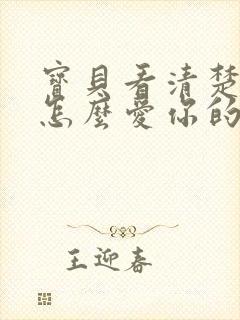 寶貝看清楚
怎麼愛你的
王迎春